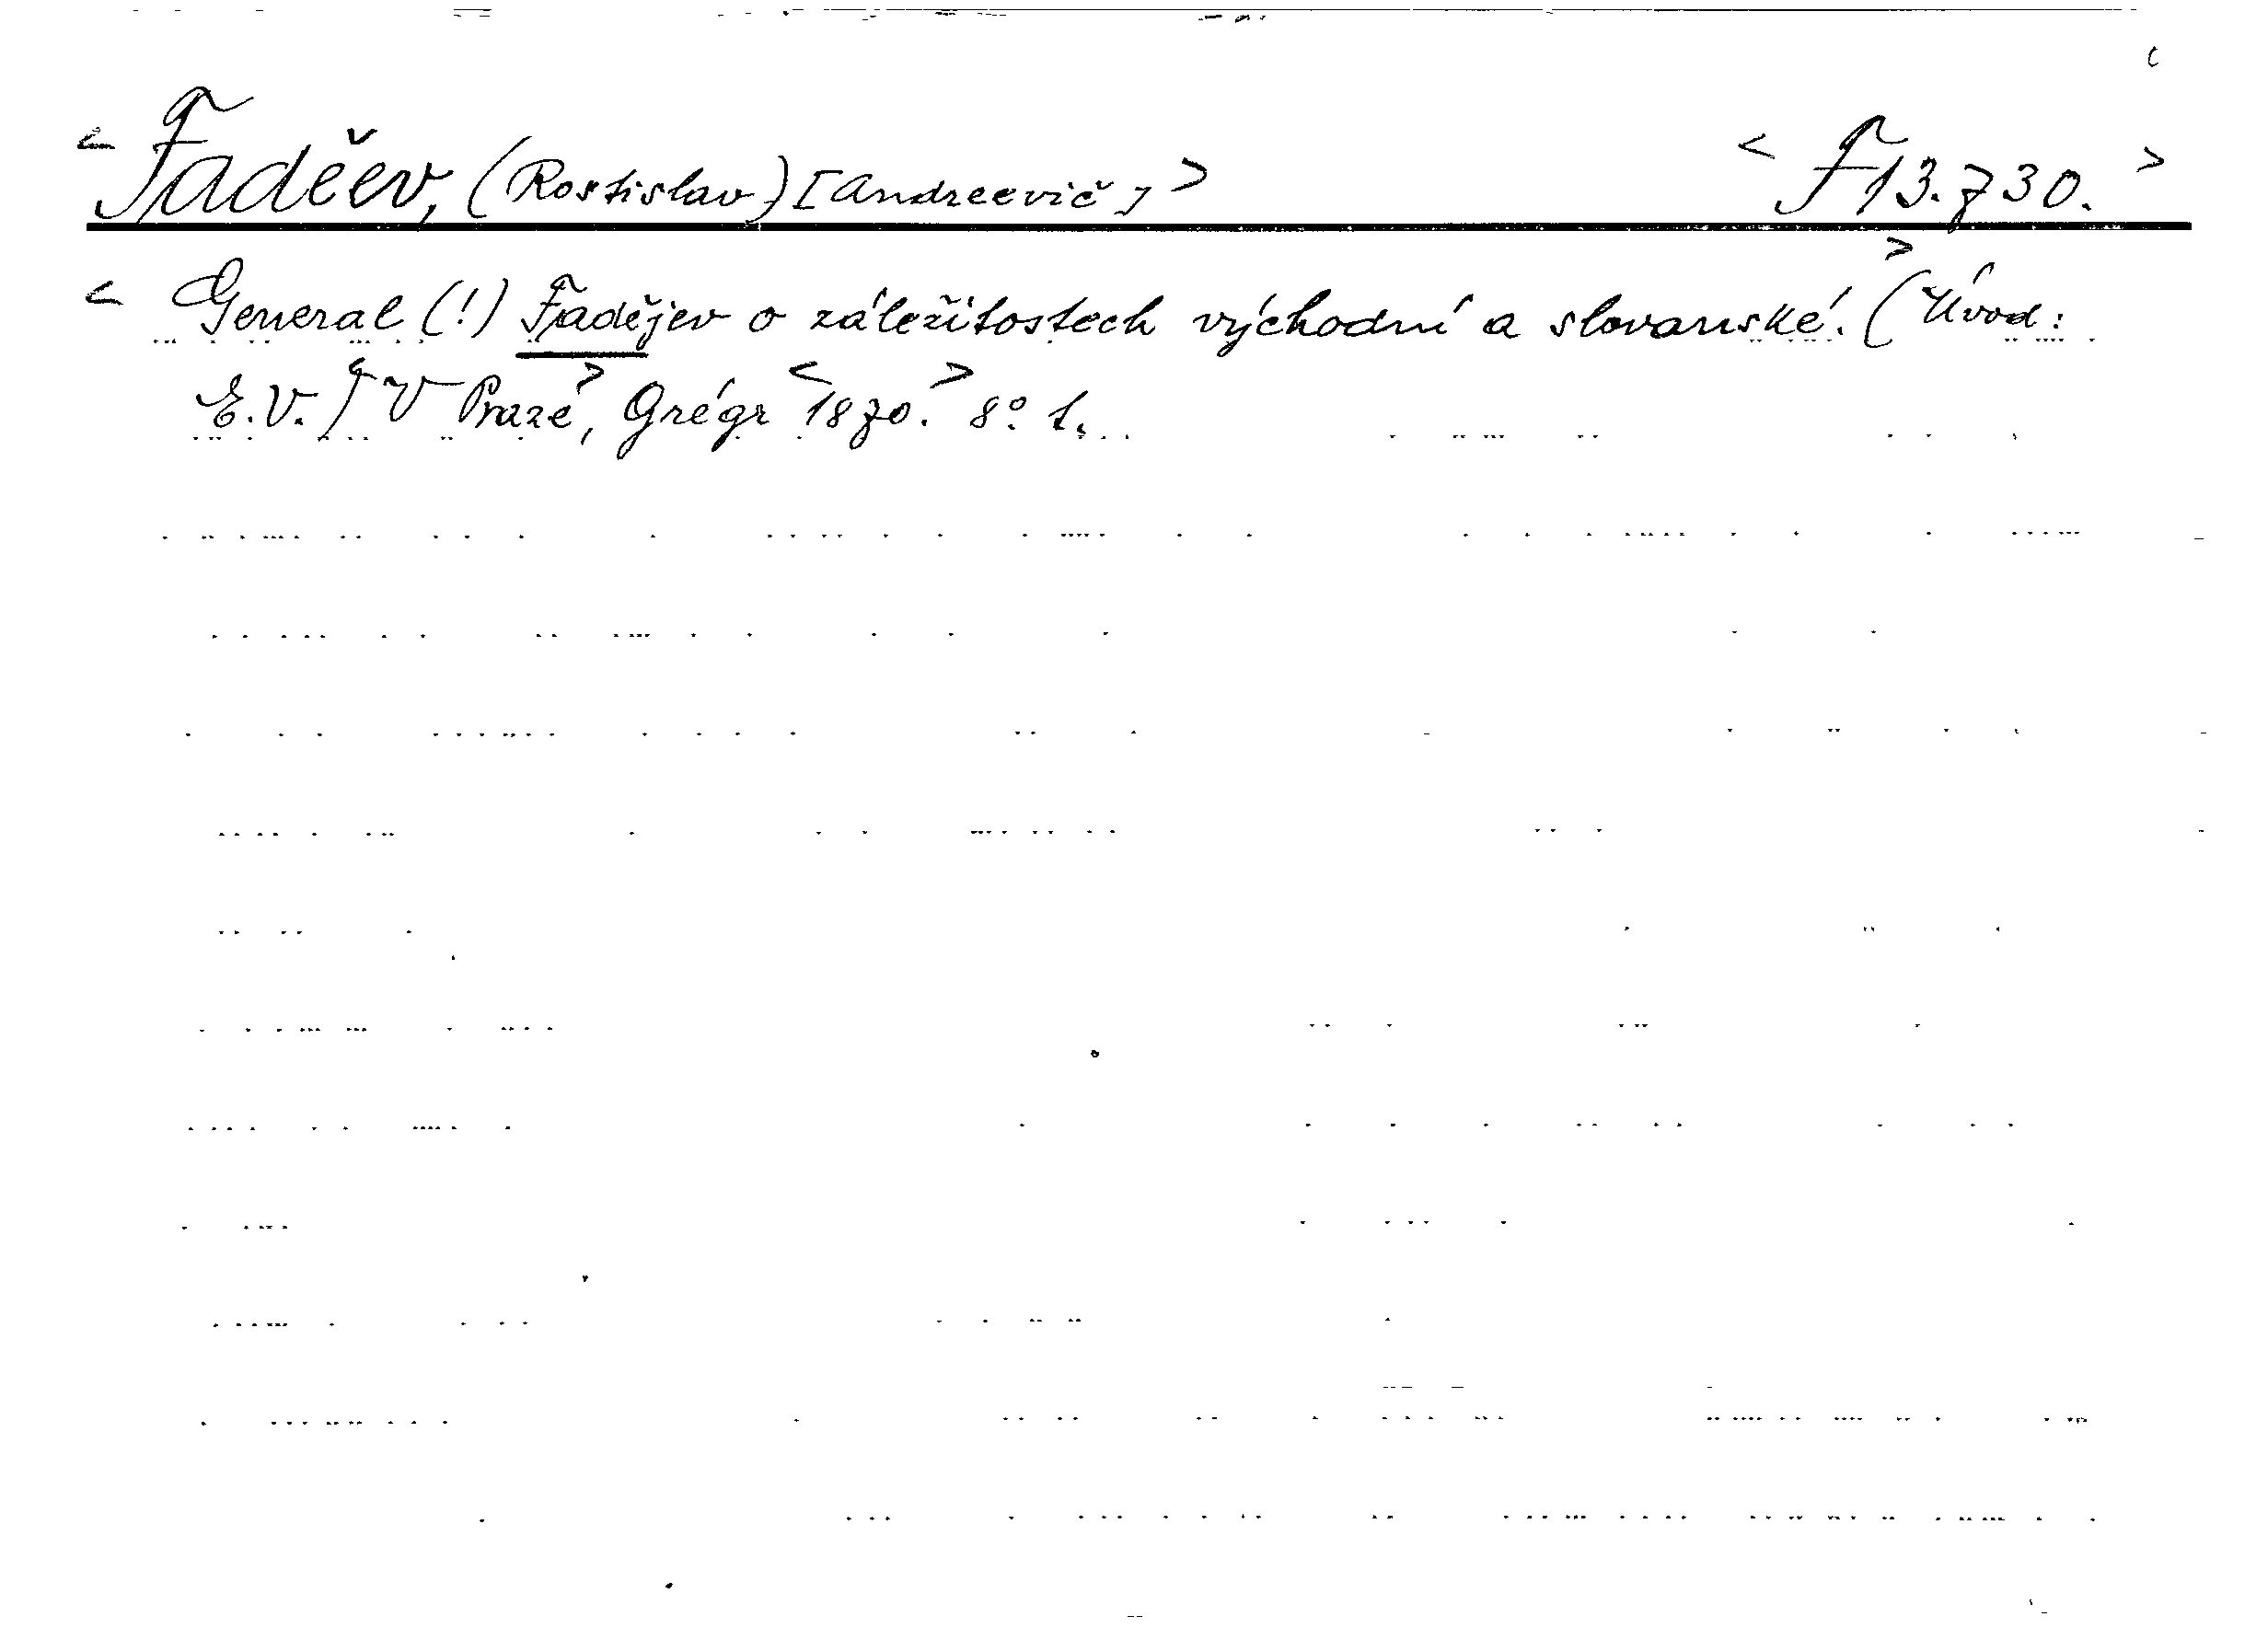 < Faděev, (Rostislav) [Andreevič] > < F 13.730. >
< General (!) Fadějev o záležitostech východní a slovanské. > (Úvod:
E. V.) < V Praze >, Grégr < 1870. > 8° 1.